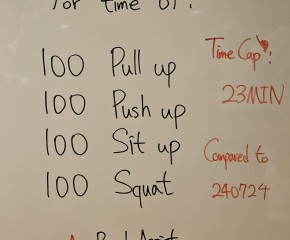 for time of:
100 Pull up
100 Push up
100 Sit up
100 Squat
Time Cap!:
23MIN
Compared to
240724